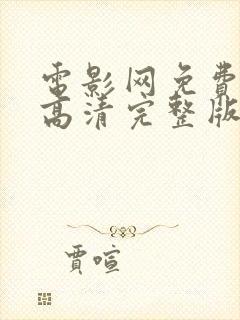 電影网免費
高清完整版
賈喧